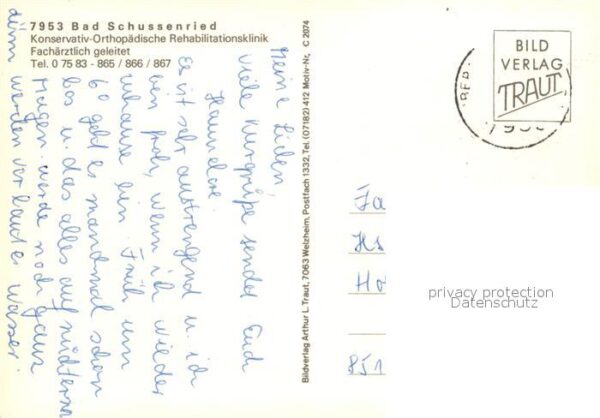 7953 Bad Schussenried
Konservativ-Orthopädische Rehabilitationsklinik
Fachärztlich geleitet
Tel. 0 75 83 - 865 / 866 / 867
Meine Lieben
viele Kurgrüße sendet Euch
Hannelore.
Es ist sehr anstrengend u. ich
bin froh, wenn ich wieder
zuhause bin. Früh um
6° geht es manchmal schon
los u. das alles auf nüchtern
Magen. werde noch ganz
dünn werden vor lauter Wasser.
Bildverlag Arthur L. Traut, 7063 Welzheim, Postfach 1332, Tel. (07182) 412 Motiv-Nr. C 2874
BILD
VERLAG
TRAUT
Fa
Hs
Ho
851
privacy protection
Datenschutz